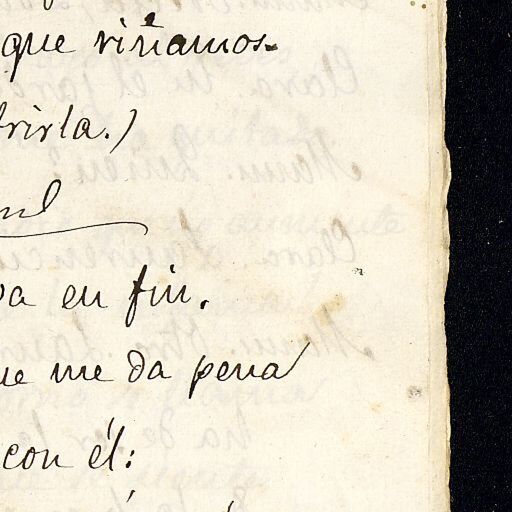 que riñamos.
rirla.)
va en fin.
ue me da pena
con él: